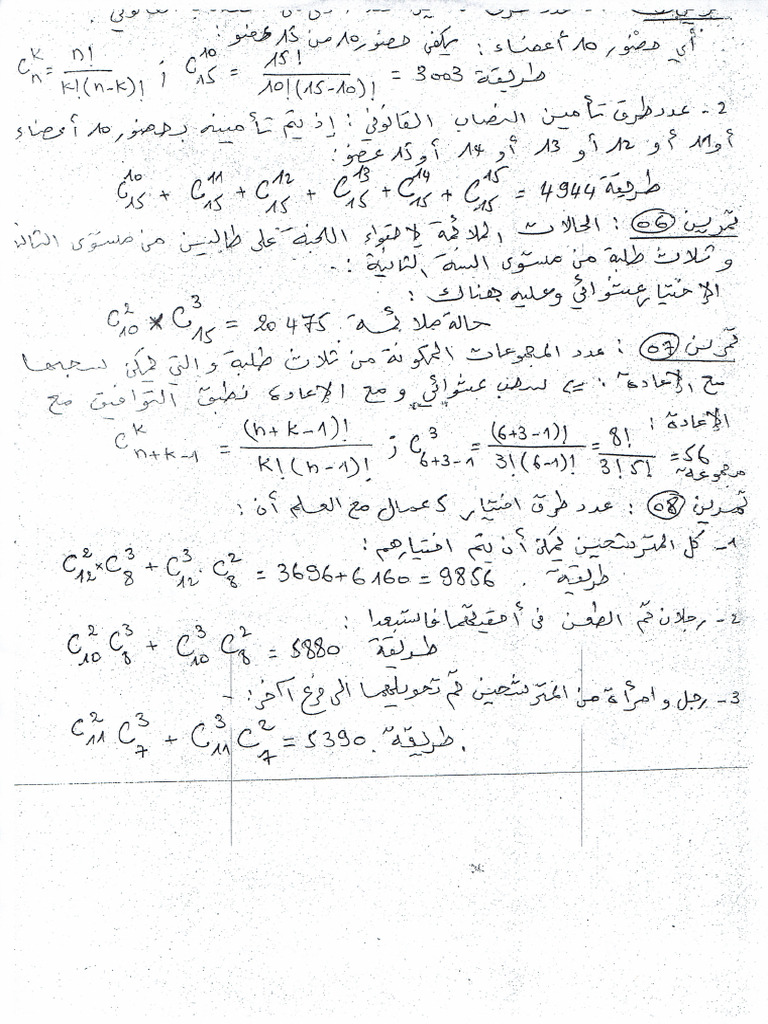 أي حضور 10 أعضاء : يكفي حضور 10 من 15 عضو :
C_n^k = n! / k!(n-k)! ; C_15^10 = 15! / 10!(15-10)! = 3003 طريقة
2- عدد طرق تأمين النصاب القانوني : إذ يتم تأمينه بحضور 10 أعضاء
أو 11 أو 12 أو 13 أو 14 أو 15 عضو :
C_15^10 + C_15^11 + C_15^12 + C_15^13 + C_15^14 + C_15^15 = 4944 طريقة
تمرين 06 : الحالات الملائمة لاحتواء اللجنة على طالبين من مستوى
و ثلاث طلبة من مستوى السنة الثانية :
الإختيار عشوائي وعليه هناك :
C_10^2 × C_15^3 = 20475 حالة ملائمة.
تمرين 07 : عدد المجموعات المكونة من ثلاث طلبة والتي يمكن سحبها
مع الإعادة : سحب عشوائي و مع الإعادة نطبق التوافيق مع
الإعادة :
C_{n+k-1}^k = (n+k-1)! / k!(n-1)! ; C_{6+3-1}^3 = (6+3-1)! / 3!(6-1)! = 8! / 3!5! = 56 مجموعة
تمرين 08 : عدد طرق اختيار 5 عمال مع العلم أن :
1- كل المترشحين يمكن أن يتم اختيارهم :
C_12^2 × C_8^3 + C_12^3 . C_8^2 = 3696+6160 = 9856 طريقة.
2- رجلان تم الطعن في أحقيتهما فاستبعدا :
C_10^2 C_8^3 + C_10^3 C_8^2 = 5880 طريقة
3- رجل و امرأة من المترشحين تم تحويلهما الى فرع آخر :-
C_11^2 C_7^3 + C_11^3 C_7^2 = 5390 طريقة.